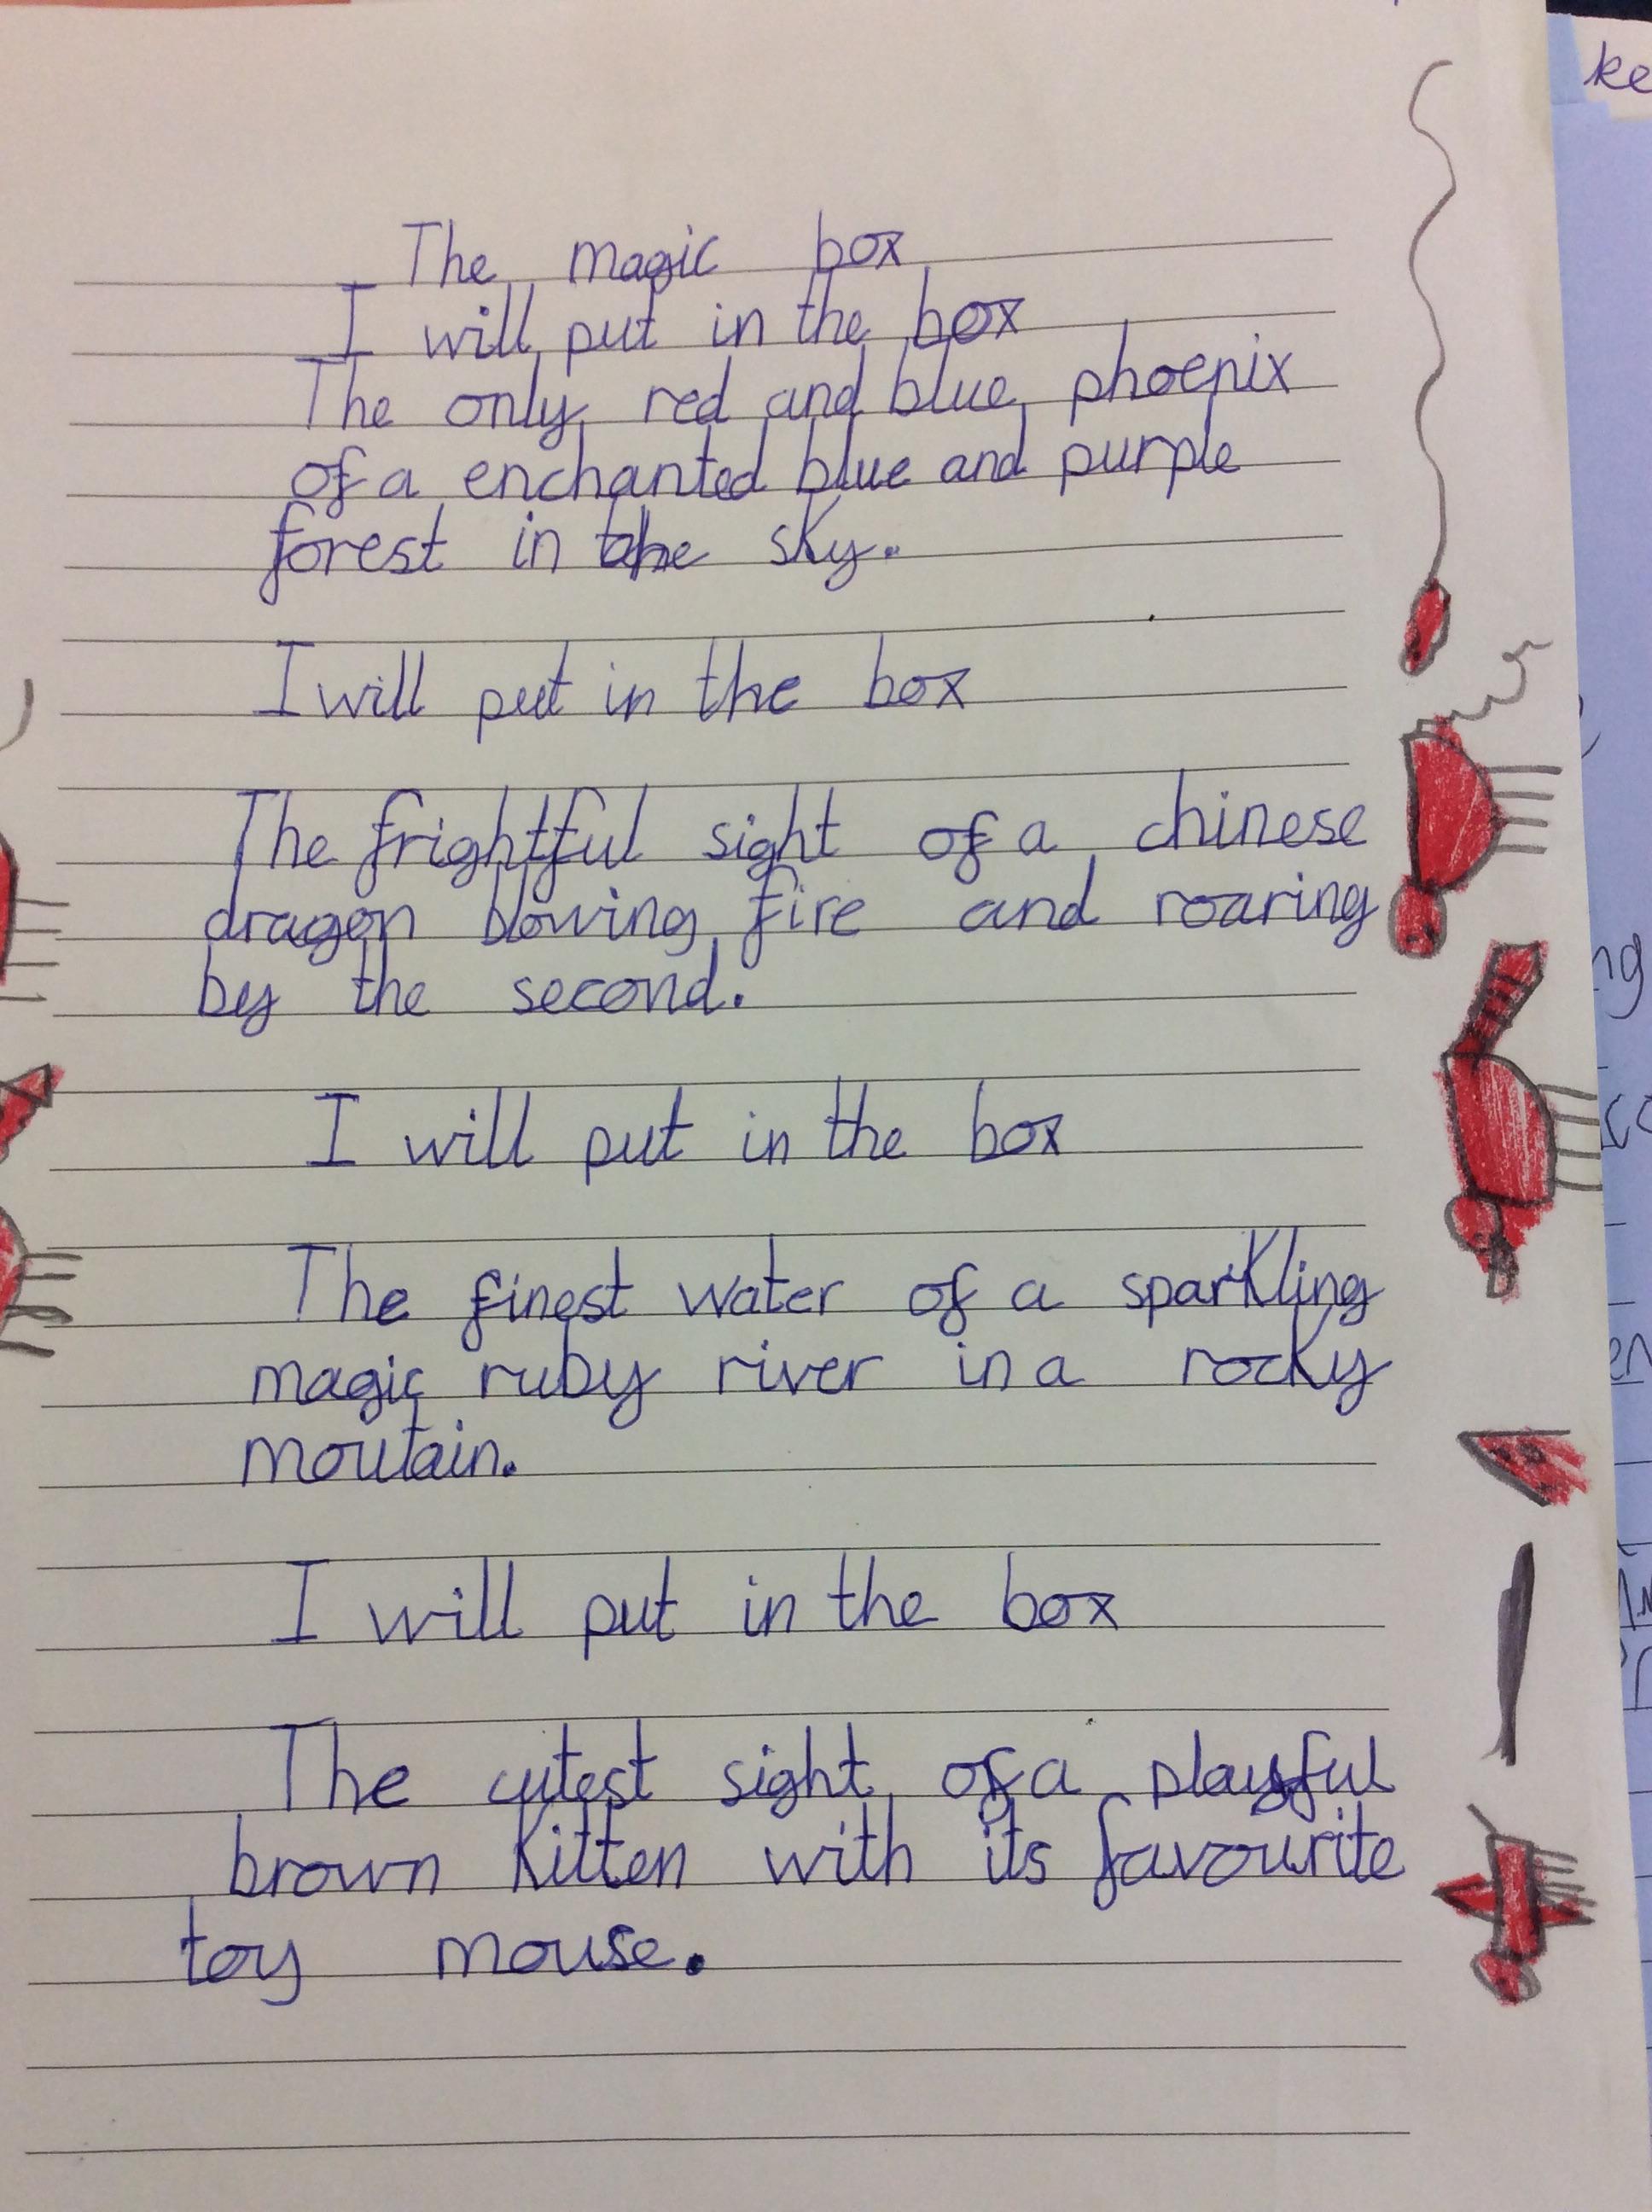 The magic box
I will put in the box
The only red and blue phoenix
of a enchanted blue and purple
forest in the sky.
I will put in the box
The frightful sight of a chinese
dragon blowing fire and roaring
by the second.
I will put in the box
The finest water of a sparkling
magic ruby river in a rocky
moutain.
I will put in the box
The cutest sight of a playful
brown kitten with its favourite
toy mouse.